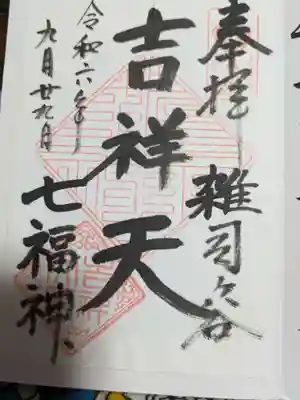 奉拝
雑司ヶ谷
吉祥天
七福神
令和六年
九月廿九日